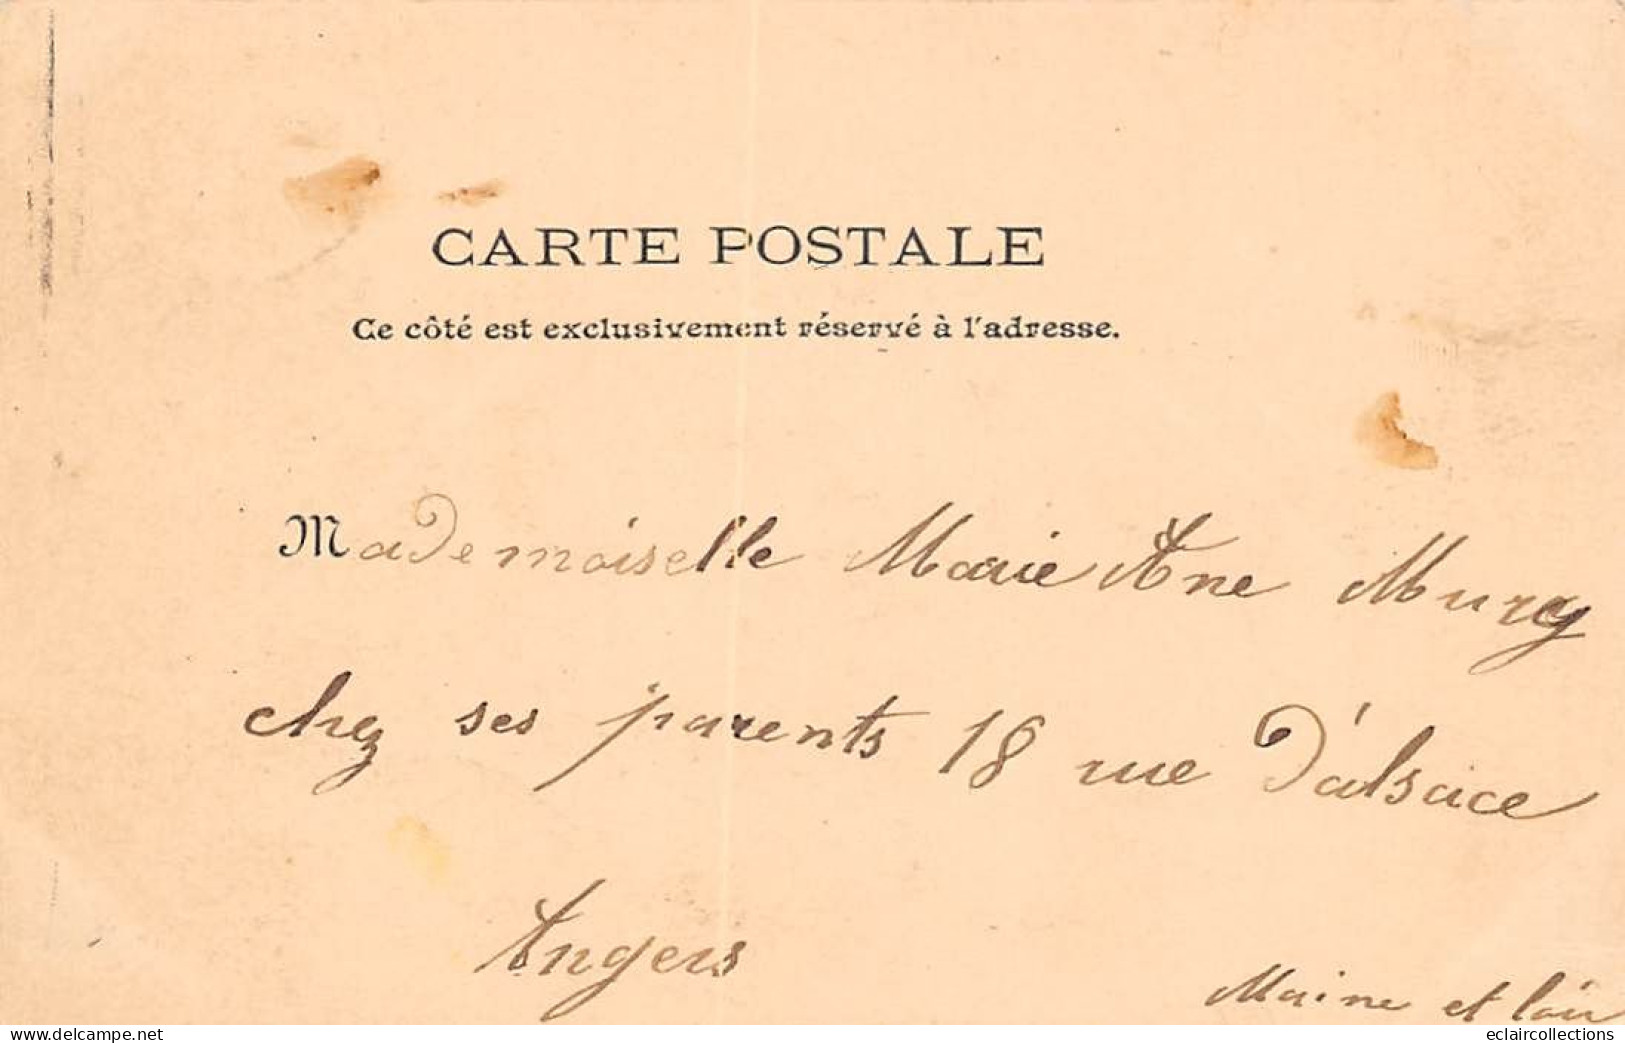 CARTE POSTALE
Ce côté est exclusivement réservé à l'adresse.
Mademoiselle Marie Ane Murcy
chez ses parents 18 rue D'alsace
Angers
Maine et loir
eclaircollections